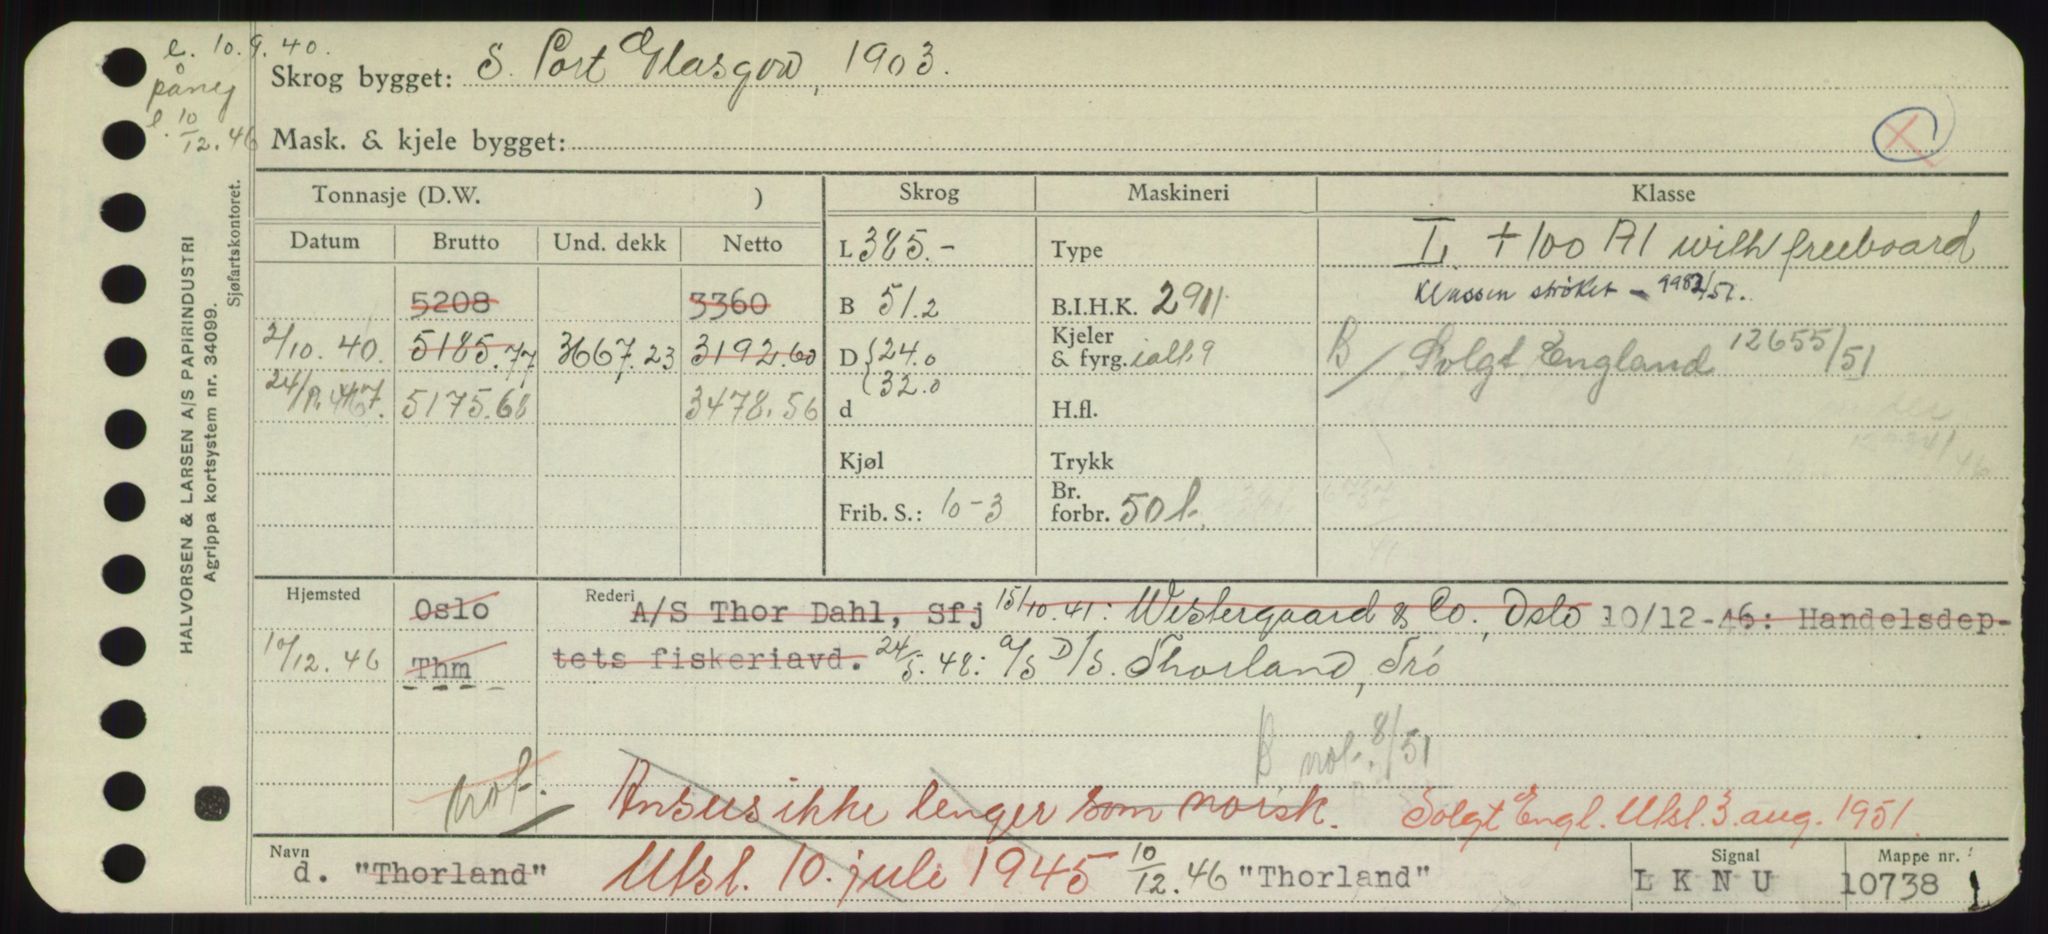 e. 10.9.40.
påny
e. 10/12.46
Skrog bygget: S. Port Glasgow, 1903.
Mask. & kjele bygget:
HALVORSEN & LARSEN A/S PAPIRINDUSTRI
Agrippa kortsystem nr. 34099.
Sjøfartskontoret.
Tonnasje (D.W. ) Skrog Maskineri Klasse
Datum Brutto Und. dekk Netto L 385.- Type L. +100 A1 with freeboard
5208 3360 B 51.2 B.I.H.K. 2911 Klassen strøket - 9982/51.
2/10.40. 5185.77 3667.23 3192.60 D {24.0 32.0 Kjeler & fyrg. ialt 9 B/ Solgt England 12655/51
5175.68 3478.56 d H.fl.
Kjøl Trykk
Frib. S.: 10-3 Br. forbr. 50 t.
Hjemsted Oslo Rederi A/S Thor Dahl, Sfj 15/10.41: Westergaard & Co., Oslo 10/12-46: Handelsdep-
10/12.46 Thm tets fiskeriavd. 24/5.48: A/S D/S. Thorland, Trö
B not. 8/51
not. Ansees ikke lenger som norsk. Solgt Engl. Utsl. 3. aug. 1951.
Navn Signal Mappe nr.
d. "Thorland" Utsl. 10. juli 1945 10/12.46 "Thorland" L K N U 10738 1